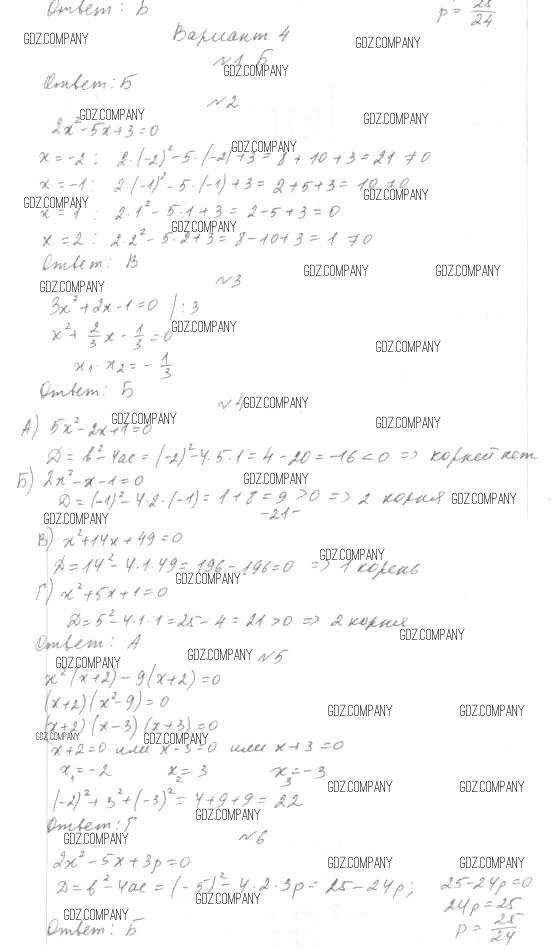 Ответ: Б
p = 25/24
GDZ.COMPANY
Вариант 4
GDZ.COMPANY
№1 Б
GDZ.COMPANY
Ответ: Б
GDZ.COMPANY
№2
GDZ.COMPANY
GDZ.COMPANY
2x²-5x+3=0
GDZ.COMPANY
x=-2: 2·(-2)²-5·(-2)+3=8+10+3=21≠0
x=-1: 2·(-1)²-5·(-1)+3=2+5+3=10≠0
GDZ.COMPANY
GDZ.COMPANY
x=1: 2·1²-5·1+3=2-5+3=0
GDZ.COMPANY
x=2: 2·2²-5·2+3=8-10+3=1≠0
Ответ: В
GDZ.COMPANY
GDZ.COMPANY
№3
GDZ.COMPANY
3x²+2x-1=0 /:3
GDZ.COMPANY
x²+2/3x-1/3=0
GDZ.COMPANY
x₁·x₂=-1/3
Ответ: Б
№4
GDZ.COMPANY
GDZ.COMPANY
GDZ.COMPANY
А) 5x²-2x+1=0
D=b²-4ac=(-2)²-4·5·1=4-20=-16<0 => корней нет
Б) 2x²-x-1=0
GDZ.COMPANY
D=(-1)²-4·2·(-1)=1+8=9>0 => 2 корня
GDZ.COMPANY
-21-
GDZ.COMPANY
В) x²+14x+49=0
GDZ.COMPANY
D=14²-4·1·49=196-196=0 => 1 корень
GDZ.COMPANY
Г) x²+5x+1=0
D=5²-4·1·1=25-4=21>0 => 2 корня
GDZ.COMPANY
Ответ: А
GDZ.COMPANY
GDZ.COMPANY
№5
x²(x+2)-9(x+2)=0
(x+2)(x²-9)=0
GDZ.COMPANY
GDZ.COMPANY
(x+2)(x-3)(x+3)=0
GDZ.COMPANY
GDZ.COMPANY
x+2=0 или x-3=0 или x+3=0
x₁=-2 x₂=3 x₃=-3
GDZ.COMPANY
GDZ.COMPANY
(-2)²+3²+(-3)²=4+9+9=22
GDZ.COMPANY
Ответ: Г
GDZ.COMPANY
№6
2x²-5x+3p=0
GDZ.COMPANY
GDZ.COMPANY
D=b²-4ac=(-5)²-4·2·3p=25-24p; 25-24p=0
GDZ.COMPANY
24p=25
GDZ.COMPANY
Ответ: Б
p=25/24